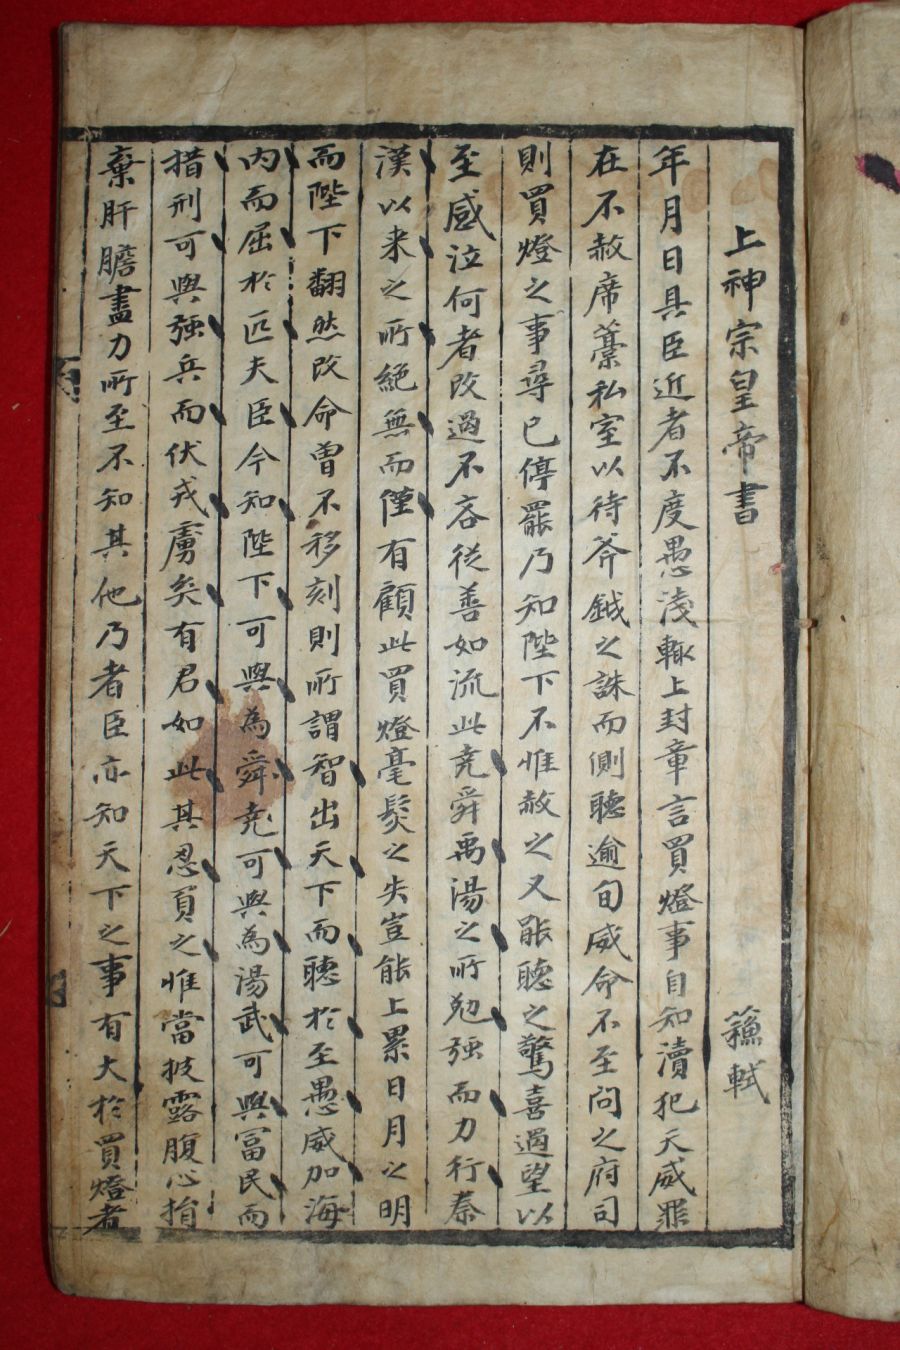 上神宗皇帝書 蘓軾
年月日具臣近者不度愚淺輙上封章言買燈事自知瀆犯天威罪
在不赦席藁私室以待斧鉞之誅而側聽逾旬威命不至问之府司
則買燈之事尋已停罷乃知陛下不惟赦之又能聽之驚喜過望以
至感泣何者改過不吝従善如流此堯舜禹湯之所勉强而力行秦
漢以来之所絶無而僅有顧此買燈毫髮之失豈能上累日月之明
而陛下翻然改命曾不移刻則所謂智出天下而聽於至愚威加海
内而屈於匹夫臣今知陛下可與為舜堯可與為湯武可與冨民而
措刑可與强兵而伏戎虜矣有君如此其忍負之惟當披露腹心捎
棄肝膽盡力所至不知其他乃者臣亦知天下之事有大於買燈者